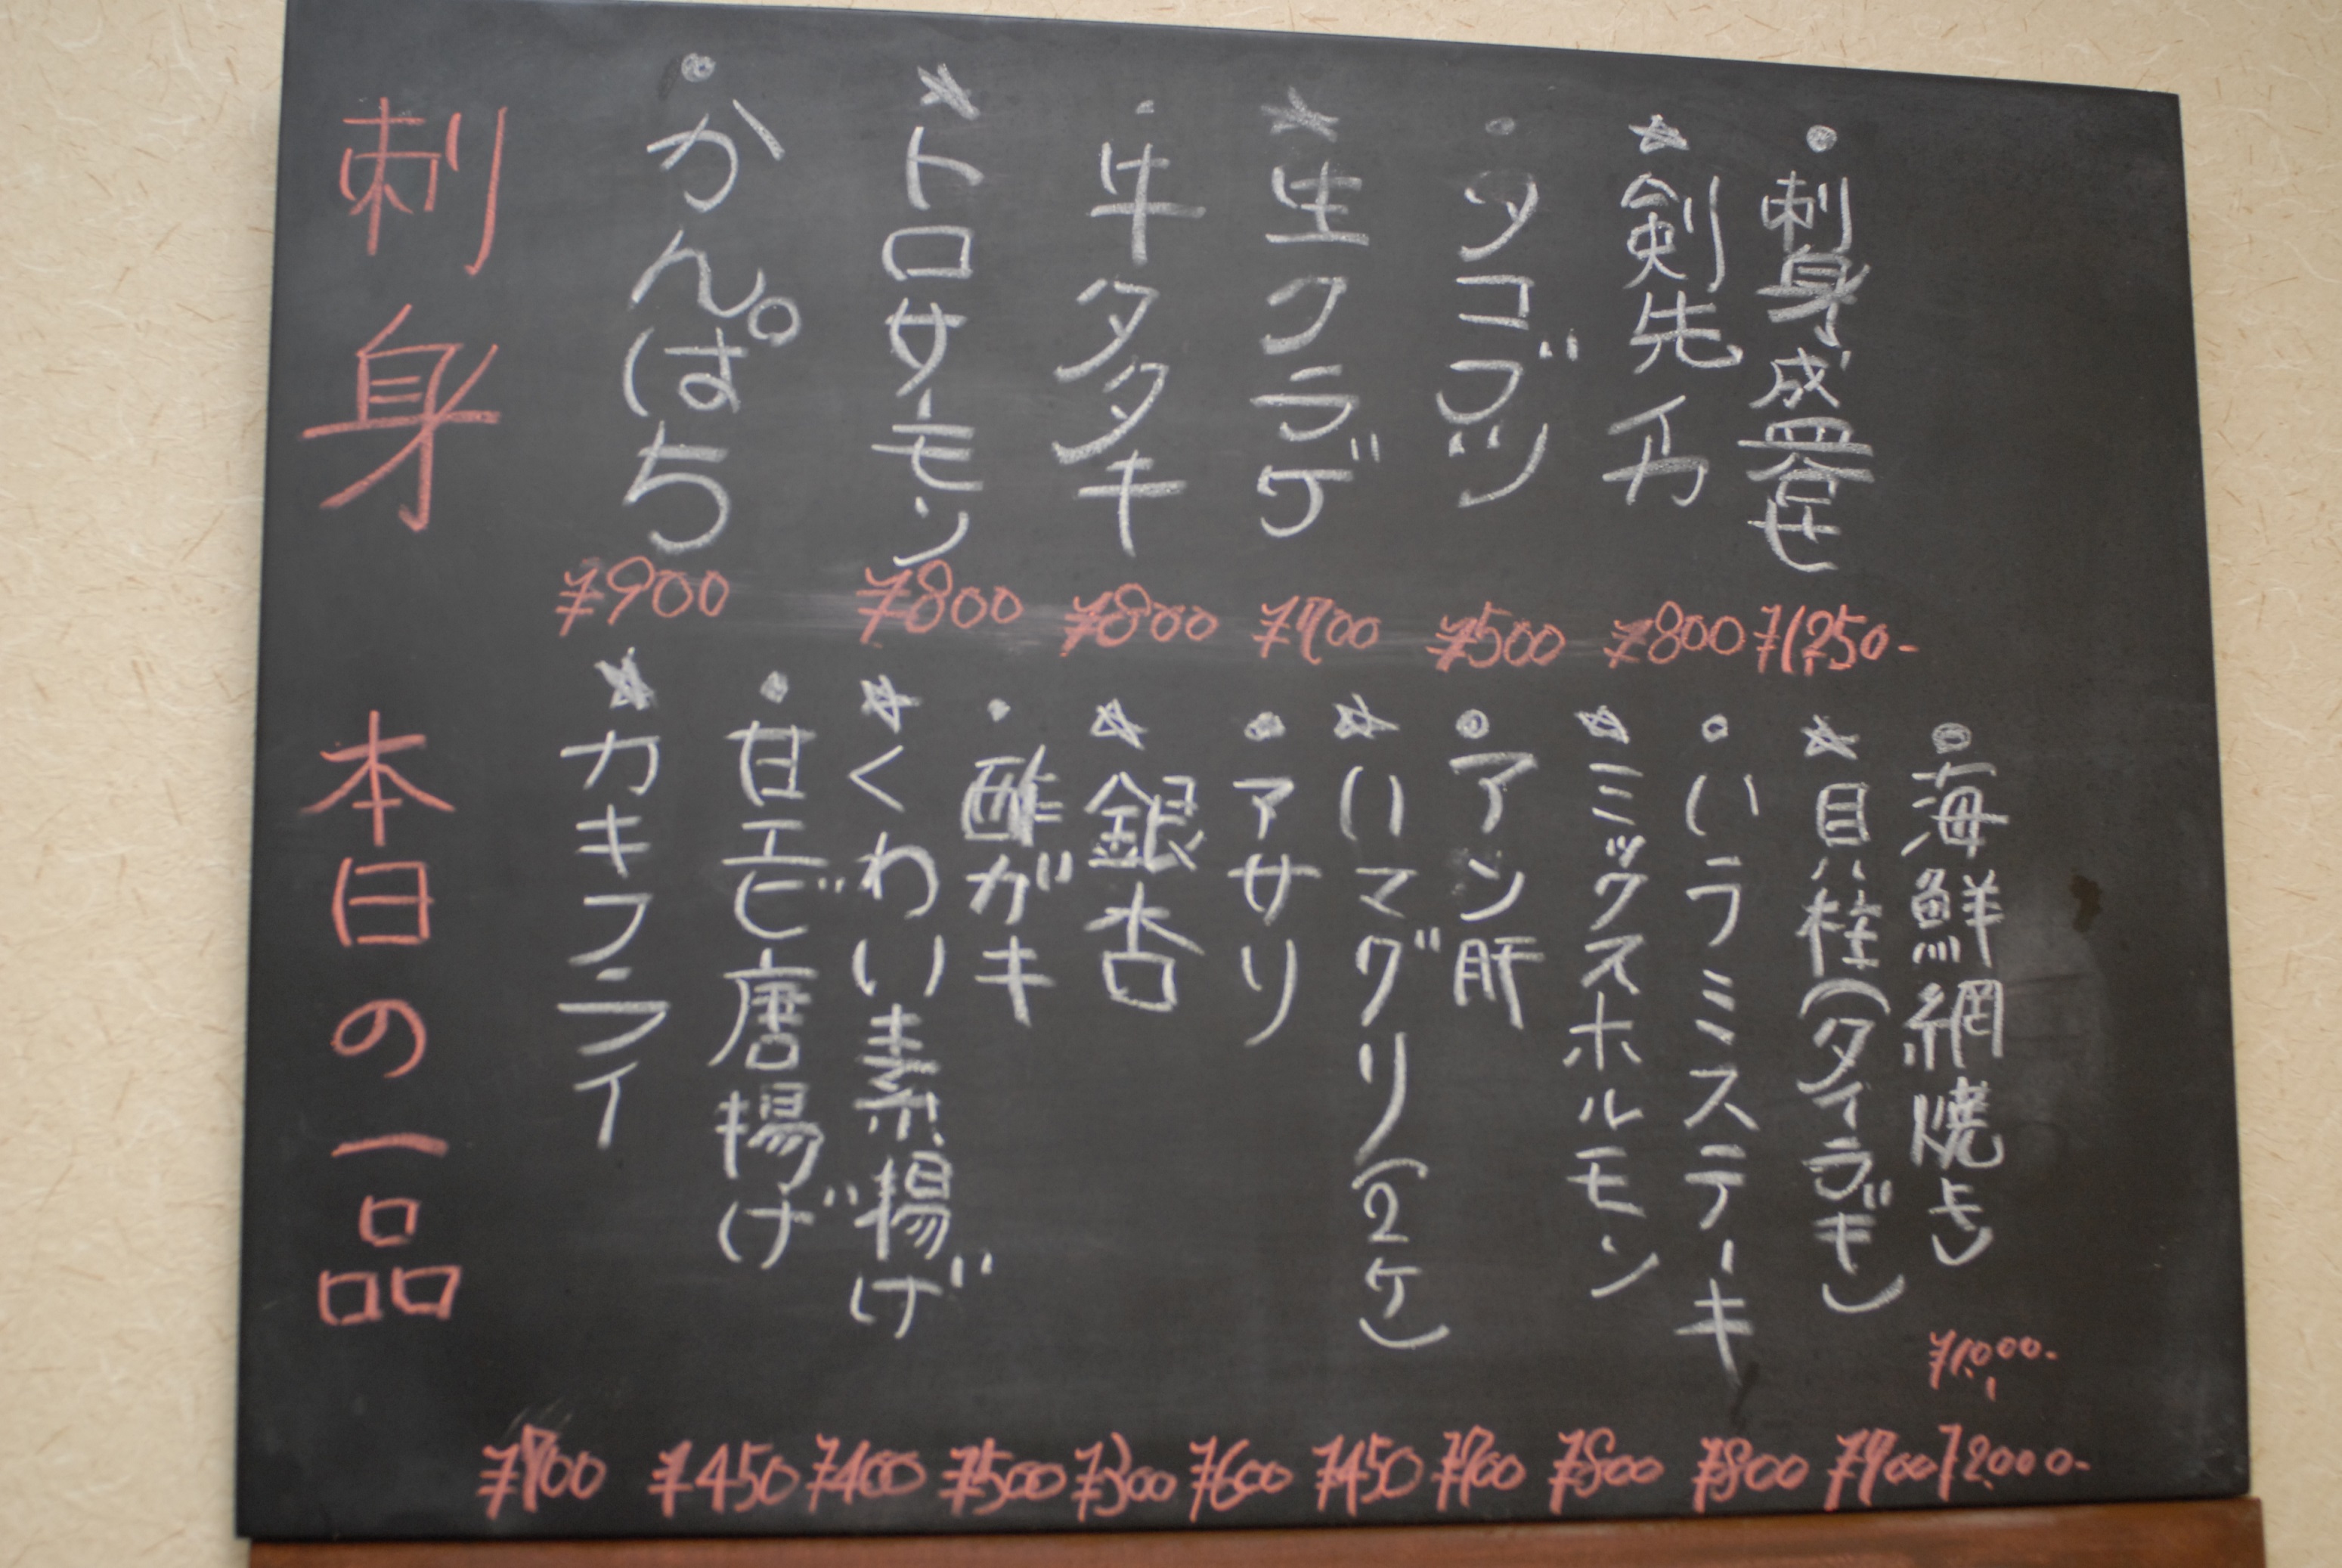 刺身
・かんぱち
¥900
☆トロサーモン
¥800
・牛タタキ
¥800
☆生クラゲ
¥700
・タコブツ
¥500
☆剣先イカ
¥800
・刺身盛合せ
¥1,250-
本日の一品
☆カキフライ
¥700
・甘エビ唐揚げ
¥450
☆くわい素揚げ
¥400
・酢ガキ
¥500
☆銀杏
¥300
・アサリ
¥600
☆ハマグリ(2ケ)
¥450
・アン肝
¥700
☆ミックスホルモン
¥800
・ハラミステーキ
¥800
☆貝柱(タイラギ)
¥700
・海鮮網焼き
¥1,000-
¥2,000-